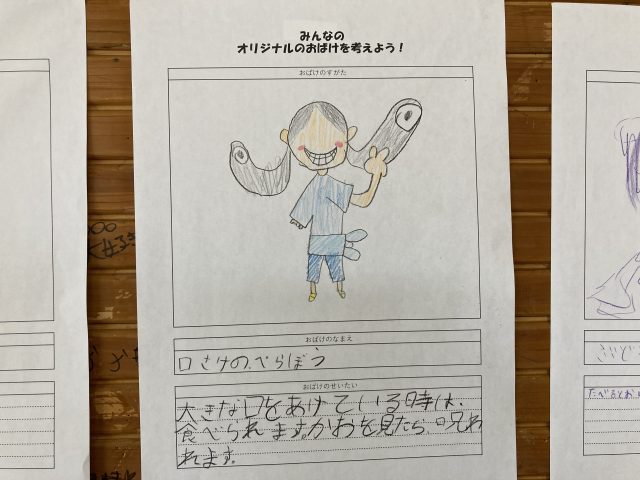 みんなの
オリジナルのおばけを考えよう！
おばけのすがた
おばけのなまえ
口さけのべらぼう
おばけのせいたい
大きな口をあけている時は、
食べられます。かおを見たら、呪われ
れます。
たべるとお